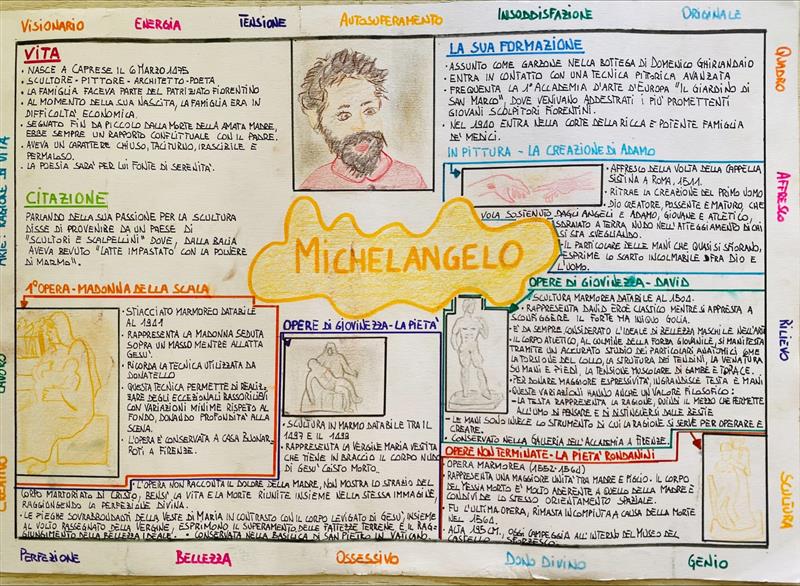 VISIONARIO ENERGIA TENSIONE AUTOSUPERAMENTO INSODDISFAZIONE ORIGINALE
VITA
• NASCE A CAPRESE IL 6 MARZO 1475
• SCULTORE - PITTORE - ARCHITETTO - POETA
• LA FAMIGLIA FACEVA PARTE DEL PATRIZIATO FIORENTINO
• AL MOMENTO DELLA SUA NASCITA, LA FAMIGLIA ERA IN
DIFFICOLTÀ ECONOMICA.
• SEGNATO FIN DA PICCOLO DALLA MORTE DELLA AMATA MADRE,
EBBE SEMPRE UN RAPPORTO CONFLITTUALE CON IL PADRE.
• AVEVA UN CARATTERE CHIUSO, TACITURNO, IRASCIBILE E
PERMALOSO.
• LA POESIA SARÀ PER LUI FONTE DI SERENITÀ.
CITAZIONE
PARLANDO DELLA SUA PASSIONE PER LA SCULTURA
DISSE DI PROVENIRE DA UN PAESE DI
"SCULTORI E SCALPELLINI" DOVE, DALLA BALIA
AVEVA BEVUTO "LATTE IMPASTATO CON LA POLVERE
DI MARMO".
LA SUA FORMAZIONE
• ASSUNTO COME GARZONE NELLA BOTTEGA DI DOMENICO GHIRLANDAIO
• ENTRA IN CONTATTO CON UNA TECNICA PITTORICA AVANZATA
• FREQUENTA LA 1ª ACCADEMIA D'ARTE D'EUROPA "IL GIARDINO DI
SAN MARCO", DOVE VENIVANO ADDESTRATI I PIÙ PROMETTENTI
GIOVANI SCULTORI FIORENTINI.
• NEL 1490 ENTRA NELLA CORTE DELLA RICCA E POTENTE FAMIGLIA
DE' MEDICI.
IN PITTURA - LA CREAZIONE DI ADAMO
• AFFRESCO DELLA VOLTA DELLA CAPPELLA
SISTINA A ROMA, 1511.
• RITRAE LA CREAZIONE DEL PRIMO UOMO
DIO CREATORE, POSSENTE E MATURO, CHE
VOLA SOSTENUTO DAGLI ANGELI E ADAMO, GIOVANE E ATLETICO,
SDRAIATO A TERRA, NUDO NELL'ATTEGGIAMENTO DI CHI
SI STA SVEGLIANDO.
IL PARTICOLARE DELLE MANI CHE QUASI SI SFIORANO,
ESPRIME LO SCARTO INCOLMABILE FRA DIO E
L'UOMO.
MICHELANGELO
1ª OPERA - MADONNA DELLA SCALA
• STIACCIATO MARMOREO DATABILE
AL 1491
• RAPPRESENTA LA MADONNA SEDUTA
SOPRA UN MASSO MENTRE ALLATTA
GESÙ.
• RICORDA LA TECNICA UTILIZZATA DA
DONATELLO
• QUESTA TECNICA PERMETTE DI REALIZ-
ZARE DEGLI ECCEZIONALI BASSORILIEVI
CON VARIAZIONI MINIME RISPETTO AL
FONDO, DONANDO PROFONDITÀ ALLA
SCENA.
• L'OPERA È CONSERVATA A CASA BUONAR-
ROTI A FIRENZE.
OPERE DI GIOVINEZZA - LA PIETÀ
• SCULTURA IN MARMO DATABILE TRA IL
1497 E IL 1499
• RAPPRESENTA LA VERGINE MARIA VESTITA
CHE TIENE IN BRACCIO IL CORPO NUDO
DI GESÙ CRISTO MORTO.
• L'OPERA NON RACCONTA IL DOLORE DELLA MADRE, NON MOSTRA LO STRAZIO DEL
CORPO MARTORIATO DI CRISTO, BENSÌ LA VITA E LA MORTE RIUNITE INSIEME NELLA STESSA IMMAGINE,
RAGGIUNGENDO LA PERFEZIONE DIVINA.
• LE PIEGHE SOVRABBONDATI DELLA VESTE DI MARIA IN CONTRASTO CON IL CORPO LEVIGATO DI GESÙ, INSIEME
AL VOLTO RASSEGNATO DELLA VERGINE, ESPRIMONO IL SUPERAMENTO DELLE FATTEZZE TERRENE E IL RAG-
GIUNGIMENTO DELLA BELLEZZA IDEALE. • CONSERVATA NELLA BASILICA DI SAN PIETRO IN VATICANO.
OPERE DI GIOVINEZZA - DAVID
• SCULTURA MARMOREA DATABILE AL 1501.
• RAPPRESENTA DAVID EROE CLASSICO MENTRE SI APPRESTA A
SCONFIGGERE IL FORTE MA INIQUO GOLIA.
• È DA SEMPRE, CONSIDERATO L'IDEALE DI BELLEZZA MASCHILE NELL'ARTE
IL CORPO ATLETICO, AL CULMINE DELLA FORZA GIOVANILE, SI MANIFESTA
TRAMITE UN ACCURATO STUDIO DEI PARTICOLARI ANATOMICI COME
LA TORSIONE DEL COLLO, LA STRUTTURA DEI TENDINI, LA VENATURA
SU MANI E PIEDI, LA TENSIONE MUSCOLARE DI GAMBE E TORACE.
• PER DONARE MAGGIORE ESPRESSIVITÀ, INGRANDISCE TESTA E MANI
• QUESTE VARIAZIONI HANNO ANCHE UN VALORE FILOSOFICO:
- LA TESTA RAPPRESENTA LA RAGIONE, QUINDI IL MEZZO CHE PERMETTE
ALL'UOMO DI PENSARE E DI DISTINGUERSI DALLE BESTIE
- LE MANI SONO INVECE LO STRUMENTO DI CUI LA RAGIONE SI SERVE PER OPERARE E
CREARE.
• CONSERVATO NELLA GALLERIA DELL'ACCADEMIA A FIRENZE.
OPERE NON TERMINATE - LA PIETÀ RONDANINI
• OPERA MARMOREA (1552-1564)
• RAPPRESENTA UNA MAGGIORE UNITÀ TRA MADRE E FIGLIO. IL CORPO
DEL MESSIA MORTO È MOLTO ADERENTE A QUELLO DELLA MADRE E
CONDIVIDE LO STESSO ORIENTAMENTO SPAZIALE.
• FU L'ULTIMA OPERA, RIMASTA INCOMPIUTA A CAUSA DELLA MORTE
NEL 1564.
• ALTA 195 CM, OGGI CAMPEGGIA ALL'INTERNO DEL MUSEO DEL
CASTELLO SFORZESCO.
QUADRO
AFFRESCO
RILIEVO
SCULTURA
PERFEZIONE BELLEZZA OSSESSIVO DONO DIVINO GENIO
CREATIVO
ARTE: RAGIONE DI VITA